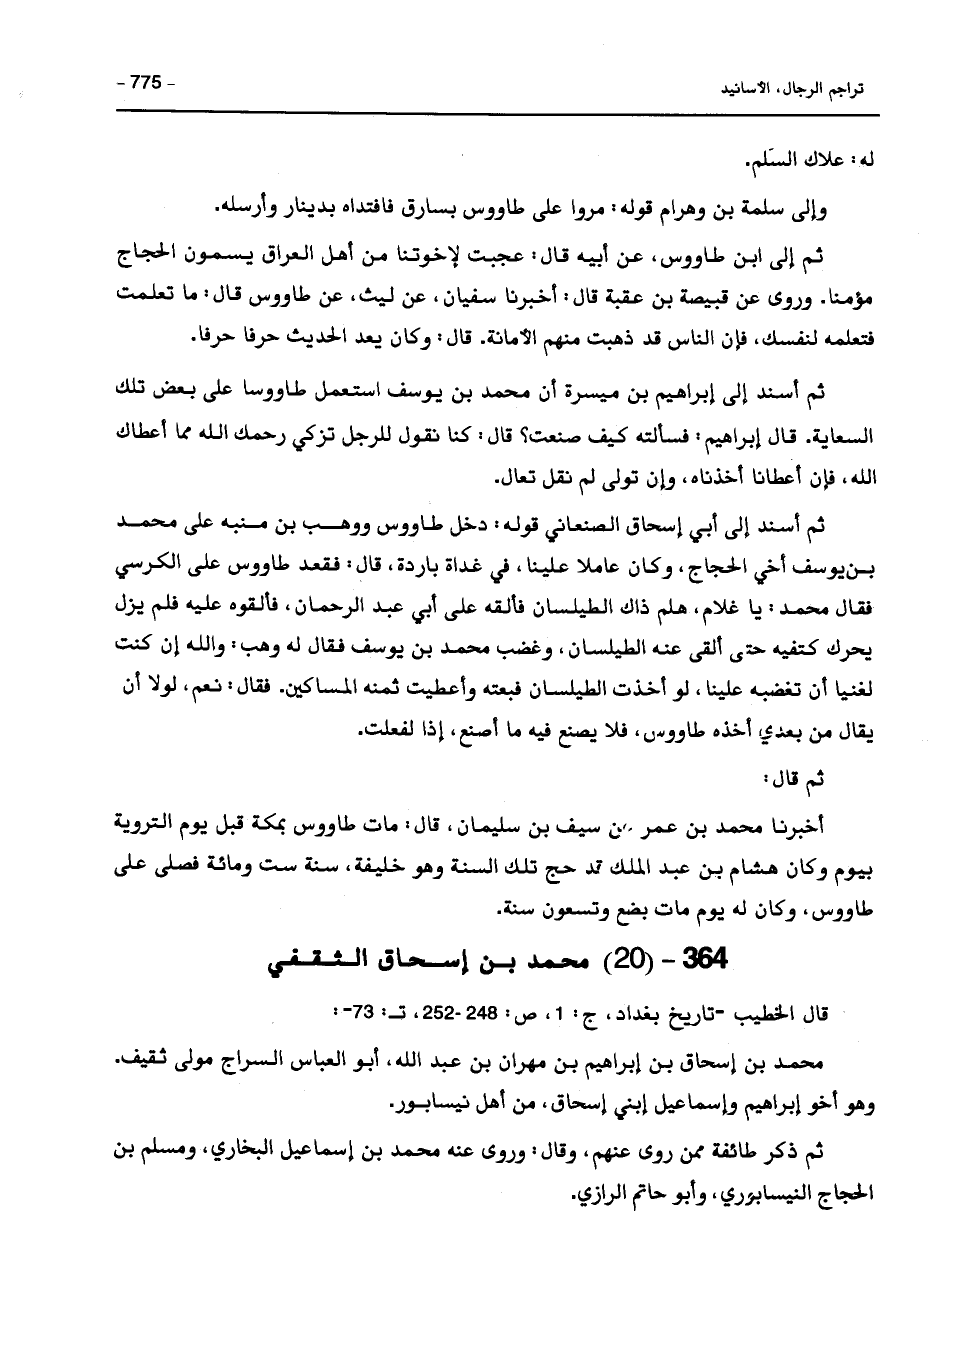 تراجم الرجال، الأسانيد
- 775 -
له: علاك السَلم.
وإلى سلمة بن وهرام قوله: مروا على طاووس بسارق فافتداه بدينار وأرسله.
ثم إلى ابن طاووس، عن أبيه قال: عجبت لإخوتنا من أهل العراق يسمون الحجاج
مؤمنا. وروى عن قبيصة بن عقبة قال: أخبرنا سفيان، عن ليث، عن طاووس قال: ما تعلمت
فتعلمه لنفسك، فإن الناس قد ذهبت منهم الأمانة. قال: وكان يعد الحديث حرفا حرفا.
ثم أسند إلى إبراهيم بن ميسرة أن محمد بن يوسف استعمل طاووسا على بعض تلك
السعاية. قال إبراهيم: فسألته كيف صنعت؟ قال: كنا نقول للرجل تزكي رحمك الله مما أعطاك
الله، فإن أعطانا أخذناه، وإن تولى لم نقل تعال.
ثم أسند إلى أبي إسحاق الصنعاني قوله: دخل طاووس ووهب بن منبه على محمد
بن يوسف أخي الحجاج، وكان عاملا علينا، في غداة باردة، قال: فقعد طاووس على الكرسي
فقال محمد: يا غلام، هلم ذاك الطيلسان فألقه على أبي عبد الرحمان، فألقوه عليه فلم يزل
يحرك كتفيه حتى ألقى عنه الطيلسان، وغضب محمد بن يوسف فقال له وهب: والله إن كنت
لغنيا أن تغضبه علينا، لو أخذت الطيلسان فبعته وأعطيت ثمنه المساكين. فقال: نعم، لولا أن
يقال من بعدي أخذه طاووس، فلا يصنع فيه ما أصنع، إذا لفعلت.
ثم قال:
أخبرنا محمد بن عمر بن سيف بن سليمان، قال: مات طاووس بمكة قبل يوم التروية
بيوم وكان هشام بن عبد الملك قد حج تلك السنة وهو خليفة، سنة ست ومائة فصلى على
طاووس، وكان له يوم مات بضع وتسعون سنة.
364 - (20) محمد بن إسحاق الثقفي
قال الخطيب -تاريخ بغداد، ج: 1، ص: 248-252، تـ: 73-:
محمد بن إسحاق بن إبراهيم بن مهران بن عبد الله، أبو العباس السراج مولى ثقيف.
وهو أخو إبراهيم وإسماعيل إبني إسحاق، من أهل نيسابور.
ثم ذكر طائفة ممن روى عنهم، وقال: وروى عنه محمد بن إسماعيل البخاري، ومسلم بن
الحجاج النيسابوري، وأبو حاتم الرازي.